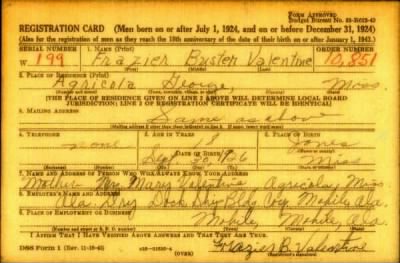 FORM APPROVED
REGISTRATION CARD (Men born on or after July 1, 1924, and on or before December 31, 1924)
(Also for the registration of men as they reach the 18th anniversary of the date of their birth on or after January 1, 1943.)
SERIAL NUMBER 1. NAME (Print) ORDER NUMBER
W 199 Frazier Buster Valentine 10,851
2. PLACE OF RESIDENCE (Print)
Agricola George, Miss.
(THE PLACE OF RESIDENCE GIVEN ON LINE 2 ABOVE WILL DETERMINE LOCAL BOARD
JURISDICTION; LINE 2 OF REGISTRATION CERTIFICATE WILL BE IDENTICAL)
3. MAILING ADDRESS
Same as above
4. TELEPHONE 5. AGE IN YEARS 6. PLACE OF BIRTH
none 18 Jones
DATE OF BIRTH
Miss
7. NAME AND ADDRESS OF PERSON WHO WILL ALWAYS KNOW YOUR ADDRESS
Mother Mrs Mary Valentine, Agricola, Miss.
8. EMPLOYER'S NAME AND ADDRESS
Ala. Dry Dock Ship Bldg. Co. Mobile, Ala.
9. PLACE OF EMPLOYMENT OR BUSINESS
Mobile, Mobile, Ala.
I AFFIRM THAT I HAVE VERIFIED ABOVE ANSWERS AND THAT THEY ARE TRUE.
DSS Form 1 (OVER) Frazier B. Valentine